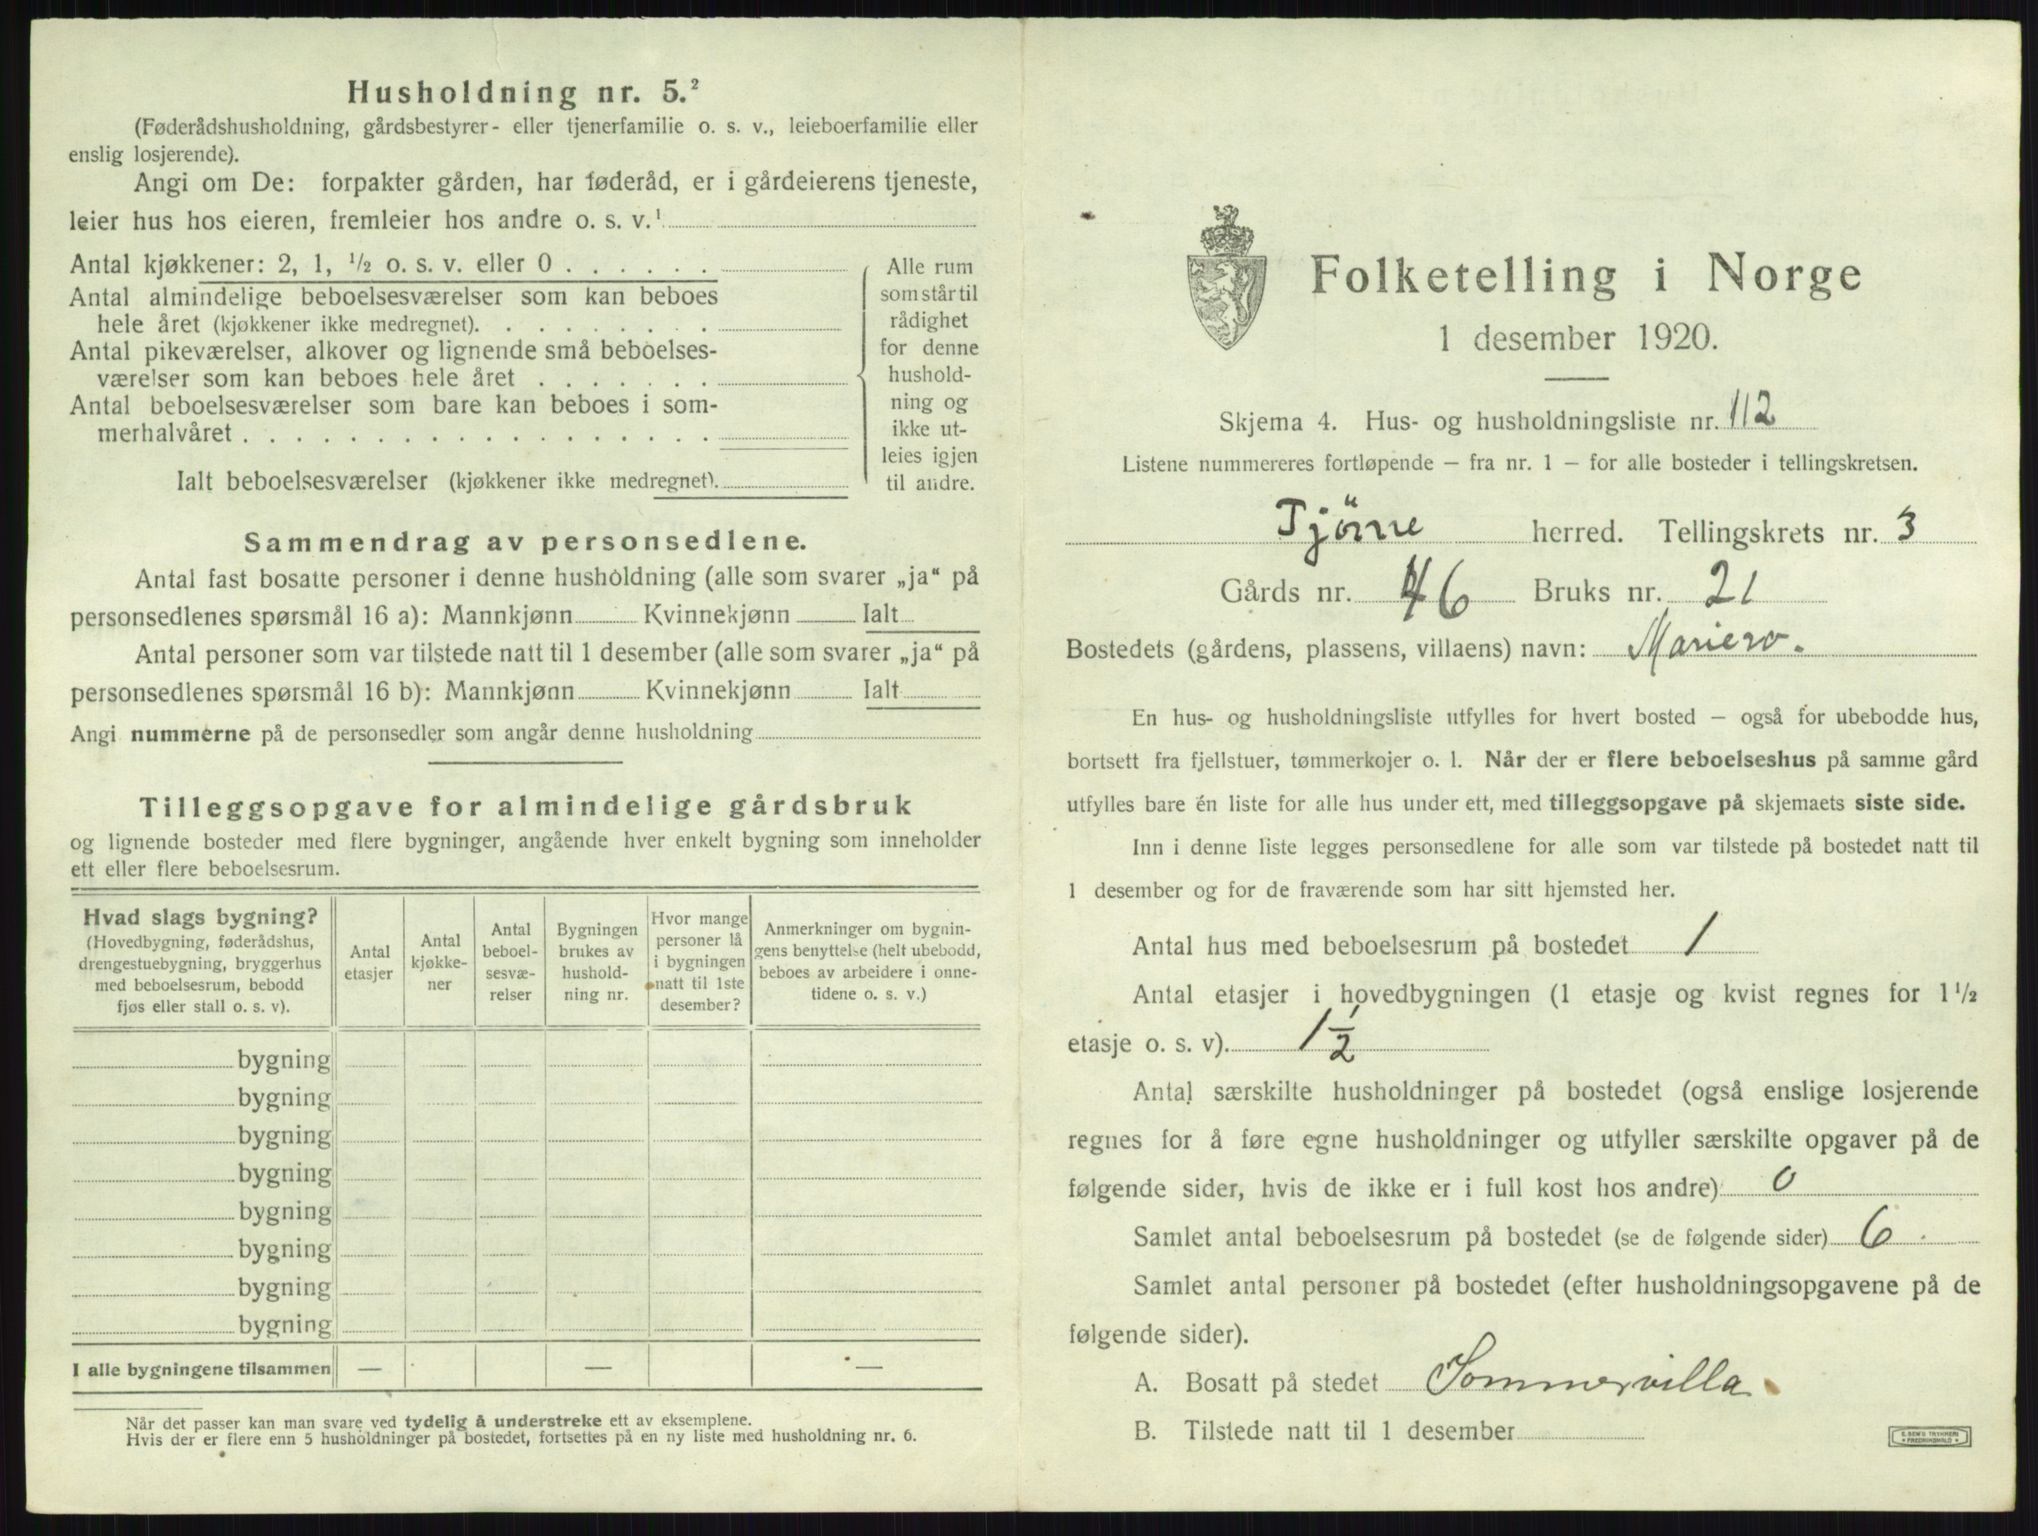 Husholdning nr. 5.²
(Føderådshusholdning, gårdsbestyrer- eller tjenerfamilie o. s. v., leieboerfamilie eller
enslig losjerende).
Angi om De: forpakter gården, har føderåd, er i gårdeierens tjeneste,
leier hus hos eieren, fremleier hos andre o. s. v.¹
Antal kjøkkener: 2, 1, ½ o. s. v. eller 0 . . . . . .
Antal almindelige beboelsesværelser som kan beboes
hele året (kjøkkener ikke medregnet). . . . . . . . .
Antal pikeværelser, alkover og lignende små beboelses-
værelser som kan beboes hele året . . . . . . .
Antal beboelsesværelser som bare kan beboes i som-
merhalvåret . . . . . . . . . . . . . . . . . .
Ialt beboelsesværelser (kjøkkener ikke medregnet).
Alle rum
som står til
rådighet
for denne
hushold-
ning og
ikke ut-
leies igjen
til andre.
Sammendrag av personsedlene.
Antal fast bosatte personer i denne husholdning (alle som svarer „ja“ på
personsedlenes spørsmål 16 a): Mannkjønn Kvinnekjønn Ialt
Antal personer som var tilstede natt til 1 desember (alle som svarer „ja“ på
personsedlenes spørsmål 16 b): Mannkjønn Kvinnekjønn Ialt
Angi nummerne på de personsedler som angår denne husholdning
Tilleggsopgave for almindelige gårdsbruk
og lignende bosteder med flere bygninger, angående hver enkelt bygning som inneholder
ett eller flere beboelsesrum.
Hvad slags bygning?
(Hovedbygning, føderådshus,
drengestuebygning, bryggerhus
med beboelsesrum, bebodd
fjøs eller stall o. s. v).
Antal
etasjer
Antal
kjøkke-
ner
Antal
beboel-
sesvæ-
relser
Bygningen
brukes av
hushold-
ning nr.
Hvor mange
personer lå
i bygningen
natt til 1ste
desember?
Anmerkninger om bygnin-
gens benyttelse (helt ubebodd,
beboes av arbeidere i onne-
tidene o. s. v.)
bygning
bygning
bygning
bygning
bygning
bygning
bygning
bygning
I alle bygningene tilsammen — — —
Når det passer kan man svare ved tydelig å understreke ett av eksemplene.
Hvis der er flere enn 5 husholdninger på bostedet, fortsettes på en ny liste med husholdning nr. 6.
Folketelling i Norge
1 desember 1920.
Skjema 4. Hus- og husholdningsliste nr. 112
Listene nummereres fortløpende – fra nr. 1 – for alle bosteder i tellingskretsen.
Tjöme herred. Tellingskrets nr. 3
Gårds nr. 46 Bruks nr. 21
Bostedets (gårdens, plassens, villaens) navn: Mariero.
En hus- og husholdningsliste utfylles for hvert bosted – også for ubebodde hus,
bortsett fra fjellstuer, tømmerkojer o. l. Når der er flere beboelseshus på samme gård
utfylles bare én liste for alle hus under ett, med tilleggsopgave på skjemaets siste side.
Inn i denne liste legges personsedlene for alle som var tilstede på bostedet natt til
1 desember og for de fraværende som har sitt hjemsted her.
Antal hus med beboelsesrum på bostedet 1
Antal etasjer i hovedbygningen (1 etasje og kvist regnes for 1½
etasje o. s. v). 1½
Antal særskilte husholdninger på bostedet (også enslige losjerende
regnes for å føre egne husholdninger og utfyller særskilte opgaver på de
følgende sider, hvis de ikke er i full kost hos andre) 0
Samlet antal beboelsesrum på bostedet (se de følgende sider) 6.
Samlet antal personer på bostedet (efter husholdningsopgavene på de
følgende sider).
A. Bosatt på stedet Sommervilla
B. Tilstede natt til 1 desember